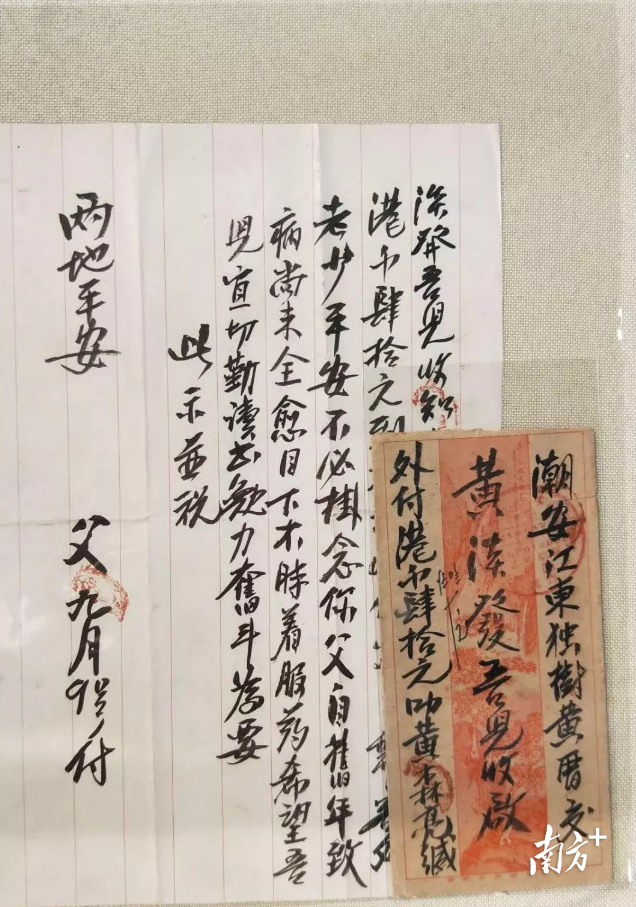 汉发吾儿收知
港币肆拾元
老少平安不必掛念你父自旧年致
病尚未全愈目下不時着服药希望吾
児宜切勤读书勉力奋斗為要
此示並祝
两地平安
父 九月9号付
潮安江東独樹黄厝交
黄漢發吾児收啟
外付港币肆拾元叻黄森亮缄
南方+